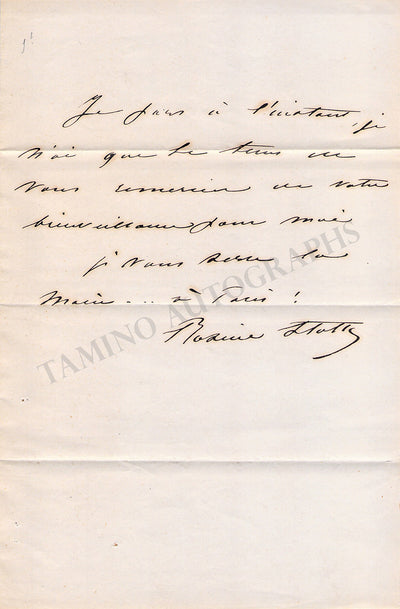 Je pars à l'instant, je
n'ai que le tems de
vous remercier de votre
bienveillance pour moi
je vous serre la
main ... à Paris !
Rosine Stoltz
TAMINO AUTOGRAPHS